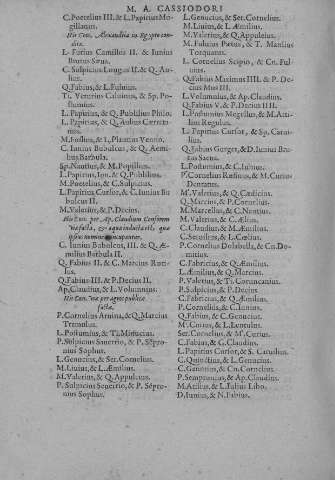 M. A. CASSIODORI
C. Poetelius III. & L. Papirius Mugillanus.
His Con. Alexandria in Egypto condita.
L. Furius Camillus II. & Iunius
Brutus Sæva.
C. Sulpicius Longus II. & Q. Aulius.
Q. Fabius, & L. Fulnius.
Ti. Veturius Calvinus, & Sp. Postumius.
L. Papirius, & Q. Publilius Philo
L. Papirius, & Q. Aulius Cerretanus.
M. Foslius, & L. Plautius Venno.
C. Iunius Bubulcus, & Q. Aemilius Barbula.
Sp. Nautius, & M. Popillius.
L. Papirius, Iun. & Q. Publilius.
M. Poetelius, & C. Sulpicius.
L. Papirius Cursor, & C. Iunius Bubulcus II.
M. Valerius, & P. Decius.
His Con. per Ap. Claudium Censorem
via facta, & aqua inducta est, quæ
ipsius nomine nuncupantur.
C. Iunius Bubulcus, III. & Q. Æmilius Barbula II.
Q. Fabius II. & C. Marcius Rutilus.
Q. Fabius III. & P. Decius II.
Ap. Claudius, & L. Volumnius.
His Con. viæ per agros publicè
factæ.
P. Cornelius Arvina, & Q. Marcius
Tremulus.
L. Postumius, & Ti. Minucius.
P. Sulpicius Saverrio, & P. Sempronius Sophus.
L. Genucius, & Ser. Cornelius.
M. Livius, & L. Æmilius.
M. Valerius, & Q. Appuleius.
P. Sulpicius Saverrio, & P. Sempronius Sophus.
L. Genucius, & Ser. Cornelius.
M. Livius, & L. Æmilius.
M. Valerius, & Q. Appuleius.
M. Fulvius Petus, & T. Manlius
Torquatus.
L. Cornelius Scipio, & Cn. Fulvius.
Q. Fabius Maximus IIII. & P. Decius Mus III.
L. Volumnius, & Ap. Claudius.
Q. Fabius V. & P. Decius IIII.
L. Postumius Megellus, & M. Attilius Regulus.
L. Papirius Cursor, & Sp. Carvilius.
Q. Fabius Gurges, & D. Iunius Brutus Sæva.
L. Postumius, & C. Iunius.
P. Cornelius Rufinus, & M. Curius
Dentatus.
M. Valerius, & Q. Cædicius.
Q. Marcius, & P. Cornelius.
M. Marcellus, & C. Nautius.
M. Valerius, & C. Ælius.
C. Claudius, & M. Æmilius.
C. Servilius, & L. Cælius.
P. Cornelius Dolabella, & Cn. Domitius.
C. Fabricius, & Q. Æmilius.
L. Æmilius, & Q. Marcius.
P. Valerius, & Ti. Coruncanius.
P. Sulpicius, & P. Decius
C. Fabricius, & Q. Æmilius.
P. Cornelius, & C. Iunius.
Q. Fabius, & C. Genucius.
M. Curius, & L. Lentulus.
Ser. Cornelius, & M. Curius.
C. Fabius, & C. Claudius.
L. Papirius Cursor, & S. Carvilius.
C. Quinctius, & L. Genucius.
C. Genucius, & Cn. Cornelius.
P. Sempronius, & Ap. Claudius.
M. Atilius, & L. Iulius Libo.
D. Iunius, & N. Fabius.